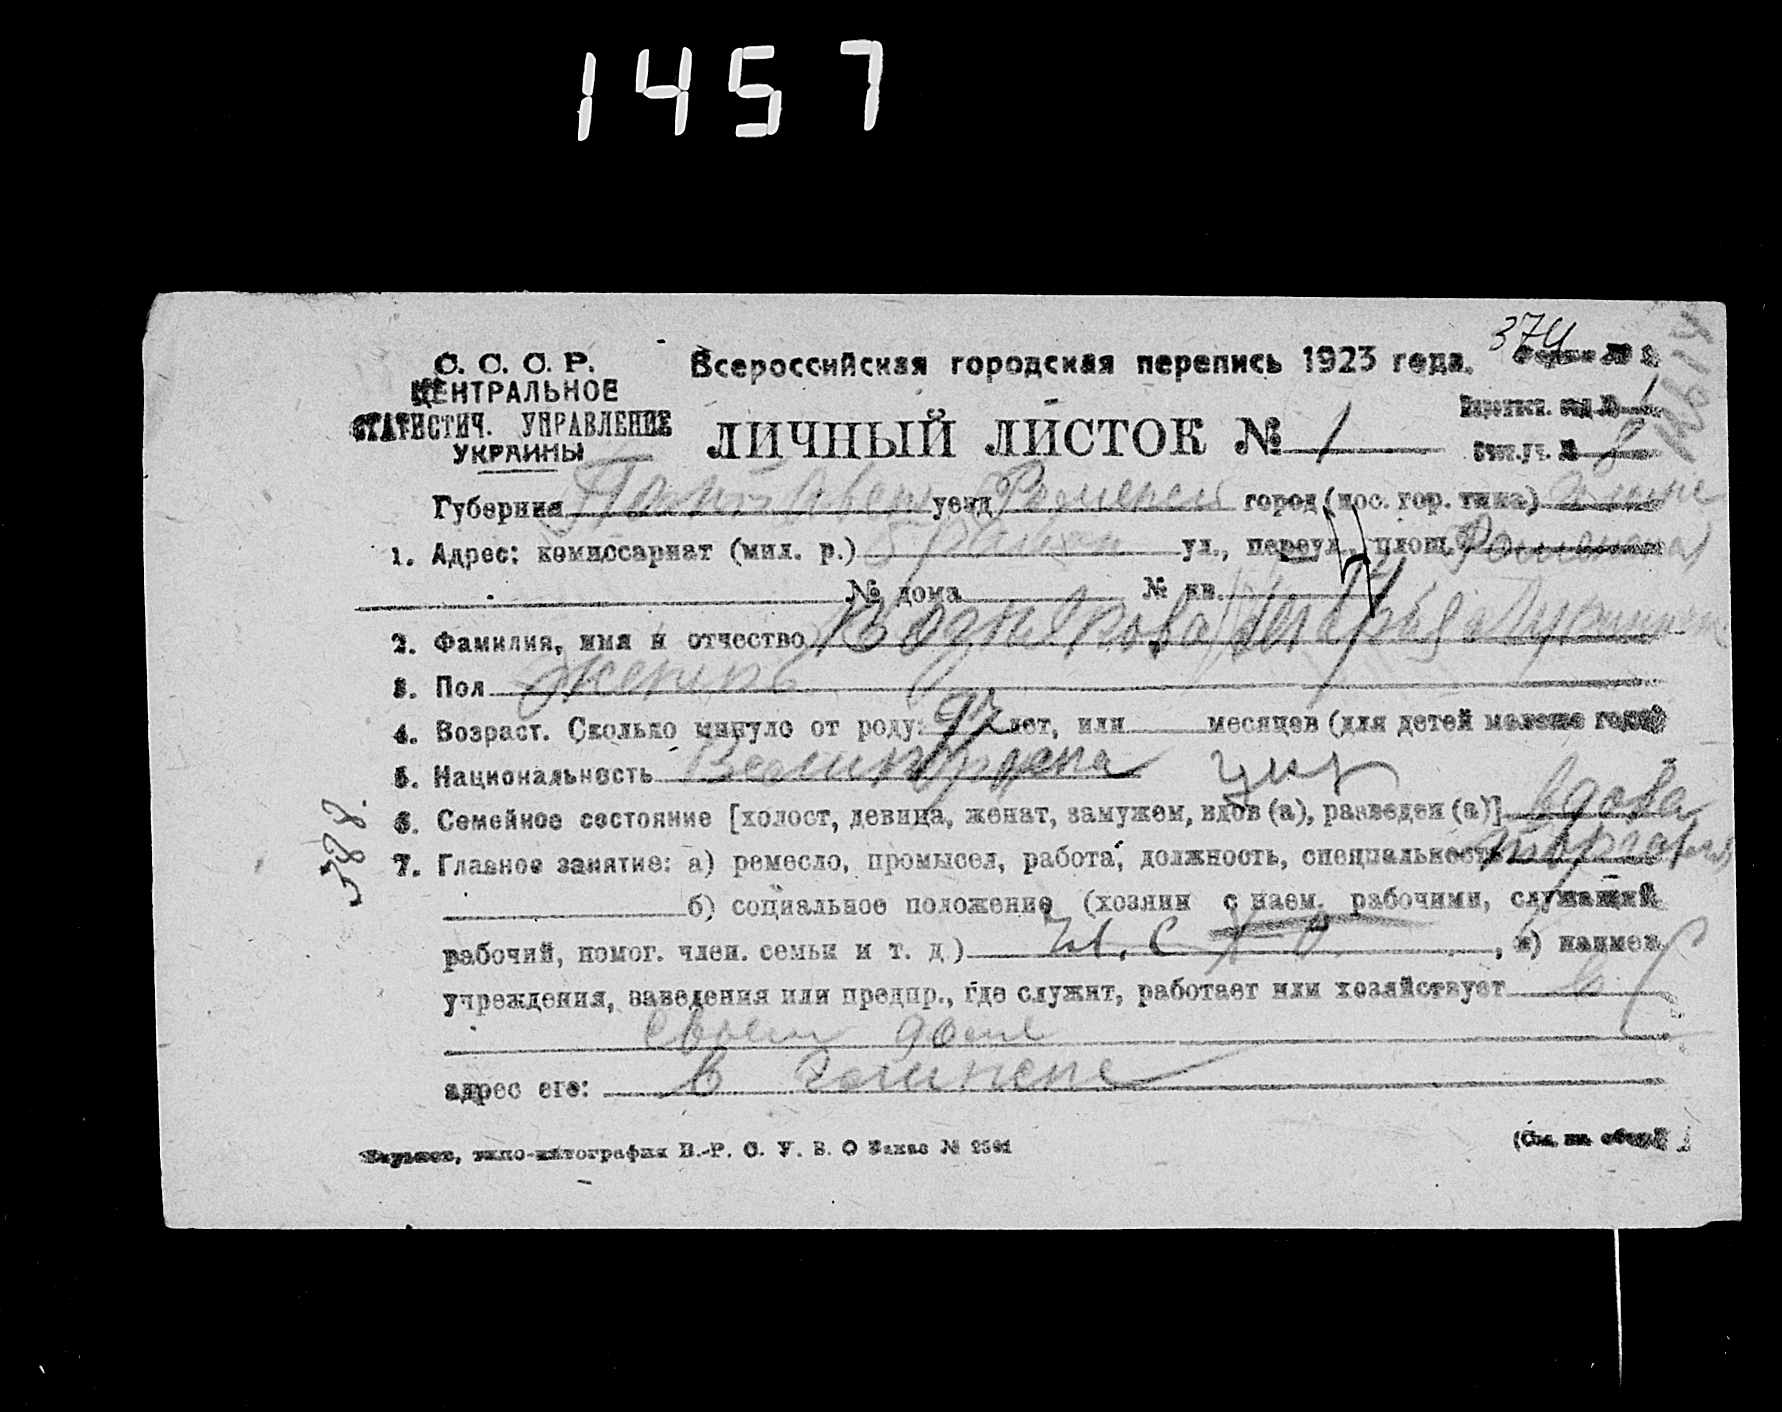 1457
374
С. С. С. Р.
ЦЕНТРАЛЬНОЕ
СТАТИСТИЧ. УПРАВЛЕНИЕ
УКРАИНЫ
Всероссийская городская перепись 1923 года.
ЛИЧНЫЙ ЛИСТОК № 1
Губерния Полтавск уезд Роменский город (пос. гор. типа)
1. Адрес: комиссариат (мил. р.) ул., переул., площ. Роменская
№ дома № кв.
2. Фамилия, имя и отчество Марья
3. Пол женск
4. Возраст. Сколько минуло от роду: лет, или месяцев (для детей моложе года)
5. Национальность укр
6. Семейное состояние [холост, девица, женат, замужем, вдов (а), разведен (а)] вдова
7. Главное занятие: а) ремесло, промысел, работа, должность, специальность торговля
б) социальное положение (хозяин с наем. рабочими, служащий
рабочий, помог. член. семьи и т. д) , в) наимен.
учреждения, заведения или предпр., где служит, работает или хозяйствует в
своем доме
адрес его: в
388.
типо-литография В.-Р. С. У. В. О Заказ №
(См. на обор.)